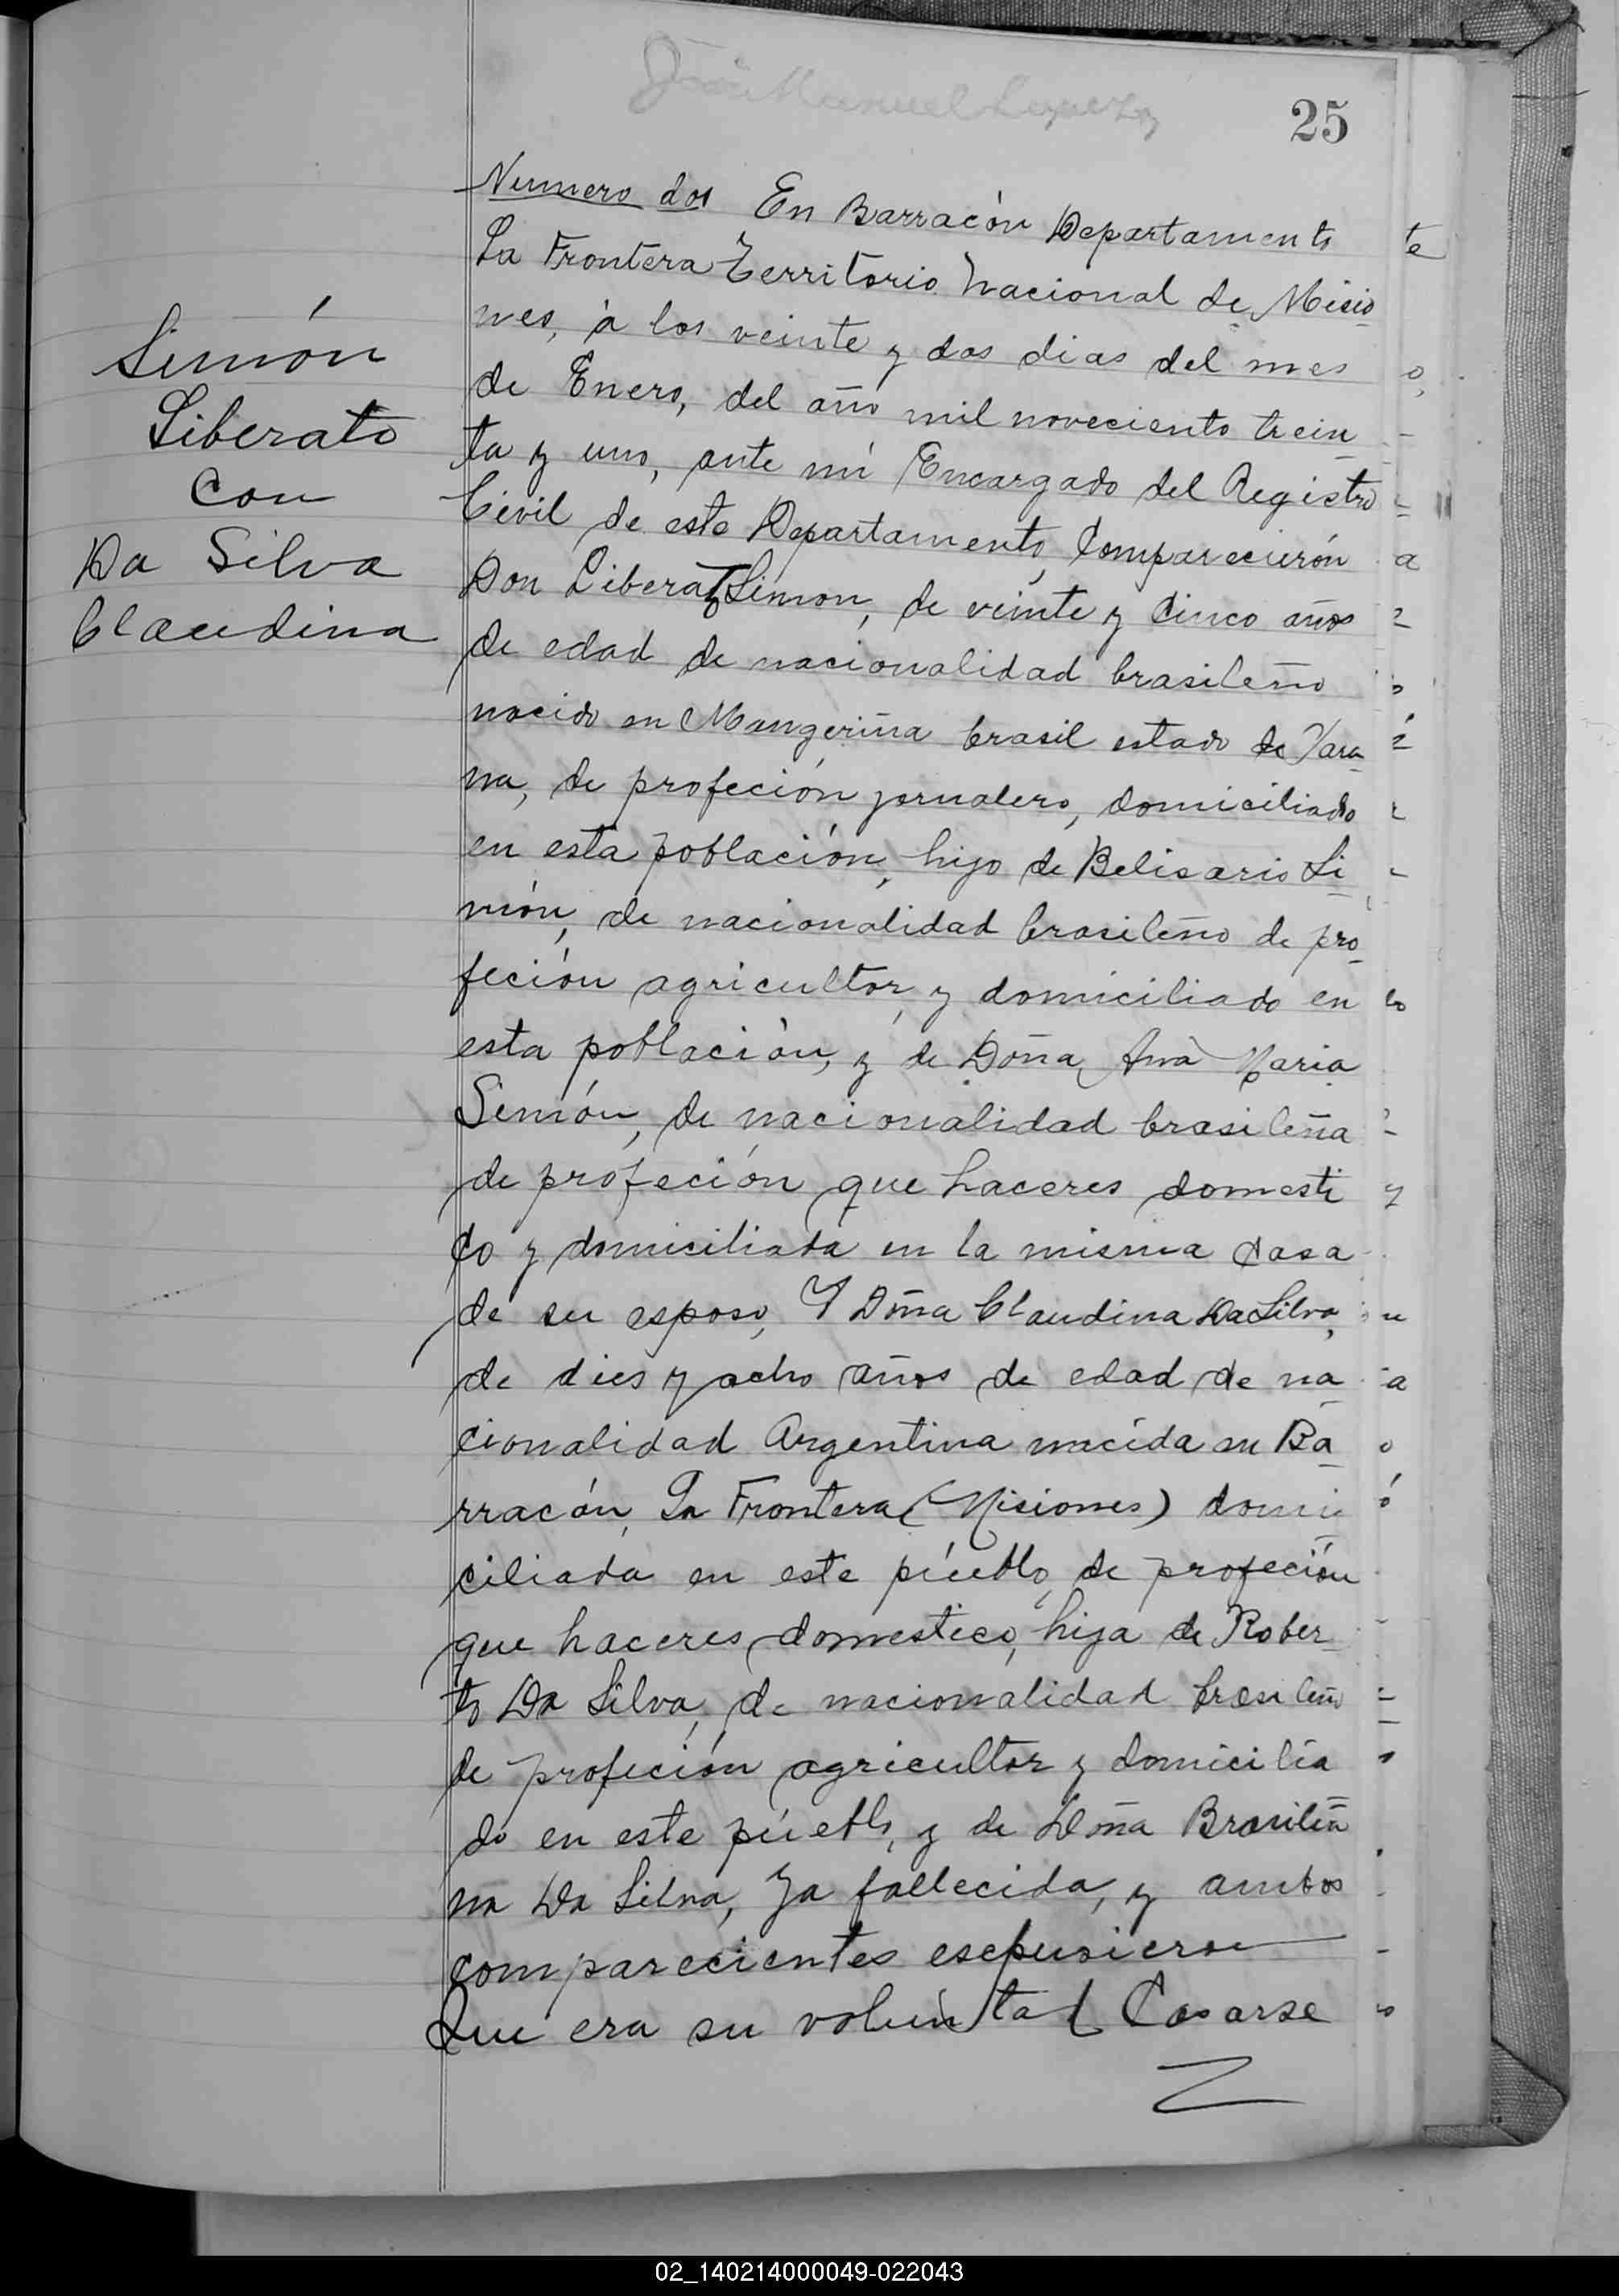 25
Simón
Liberato
Con
Da Silva
Claudina
Numero dos En Barracón Departamento
La Frontera Territorio Nacional de Misio
nes, à los veinte y dos dias del mes
de Enero, del año mil noveciento trein
ta y uno, ante mi Encargado del Registro
Civil de este Departamento, Comparecierón
Don Liberato Simon, de veinte y Cinco años
de edad de nacionalidad brasileño
nacido en Mangeriña brasil estado de Para
na, de profeción jornalero, domiciliado
en esta población, hijo de Belisario Si
món, de nacionalidad brasileño de pro
feción agricultor, y domiciliado en
esta población, y de Doña Anà Maria
Simón, de nacionalidad brasileña
de profeción que haceres domesti
co y domiciliada en la misma casa
de su esposo, Y Dña Claudina Da Silva,
de dies y ocho años de edad de na
cionalidad Argentina nacida en Ba
rracón, La Frontera (Misiones) domi
ciliada en este púeblo, de profeción
que haceres domestico, hija de Rober
to Da Silva, de nacionalidad brasileño
de profeción agricultor y domicilia
do en este púeblo, y de Doña Brasileña
na Da Silva, ya fallecida, y ambos
comparecientes esepusieron
Que era su voluntad Casarse
02_140214000049-022043